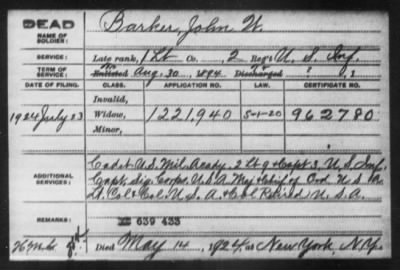 DEAD
NAME OF SOLDIER:
Barker, John W.
SERVICE:
Late rank, 1 Lt Co. 2 Reg't U. S. Inf.
TERM OF SERVICE:
Enlisted Aug. 30, 1894 Discharged ? , 1
DATE OF FILING. CLASS. APPLICATION NO. LAW. CERTIFICATE NO.
Invalid,
1924 July 23 Widow, 1221,940 5-1-20 962780
Minor,
ADDITIONAL SERVICES:
Cadet U.S. Mil. Acady. 2 Lt 9 & Capt 3, U.S. Inf.
Capt. Sig. Corps, U.S.A. Maj & Chief of Ord U S
Lt. Col & Col. U. S. A. & Col Retired U. S. A.
REMARKS:
639 433
Died May 14, 1924 at New York, N.Y.